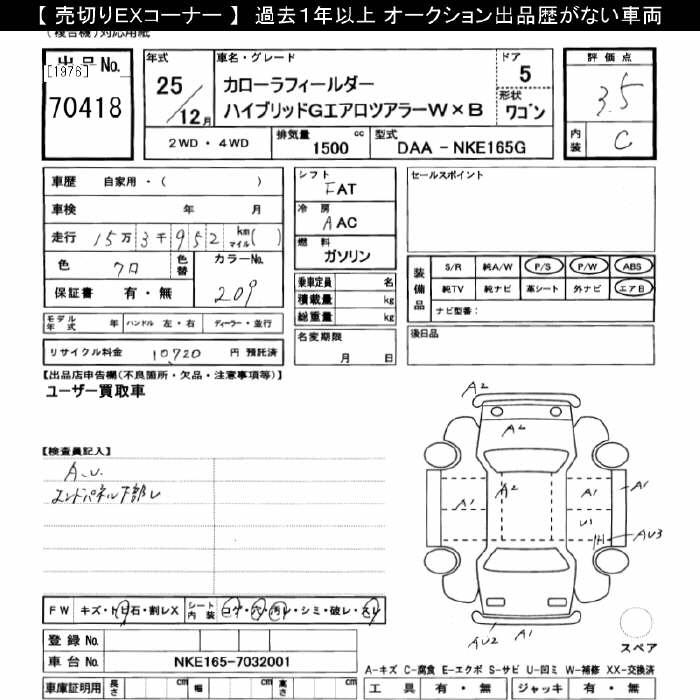 【 売切りEXコーナー 】 過去1年以上 オークション出品歴がない車両
(複合機)対応用紙
出品No.
[1976]
70418
年式
25/12月
車名・グレード
カローラフィールダー
ハイブリッドGエアロツアラーW×B
ドア
5
形状
ワゴン
評価点
3.5
内装
C
2WD・4WD
排気量
1500
cc
型式
DAA - NKE165G
車歴 自家用・( )
車検 年 月
走行 15万3千952 km マイル( )
色 クロ
色替
カラーNo.
209
保証書 有・無
モデル年式 年 ハンドル 左・右 ディーラー・並行
リサイクル料金 10,720 円 預託済
シフト
FAT
冷房
AAC
燃料
ガソリン
乗車定員 名
積載量 kg
総重量 kg
名変期限
月 日
セールスポイント
装備品
S/R 純A/W P/S P/W ABS
純TV 純ナビ 革シート 外ナビ エアB
ナビ型番:
後日品
【出品店申告欄(不良箇所・欠品・注意事項等)】
ユーザー買取車
【検査員記入】
A.U.
エンドパネル下部レ
A2
A2
A2
A1
A1
A1
U1
AU3
AU2
A1
スペア
FW キズ・トビ石・割レX
シート内装
コゲ・穴・汚レ・シミ・破レ・スレ
登録No.
車台No. NKE165-7032001
A-キズ C-腐食 E-エクボ S-サビ U-凹ミ W-補修 XX-交換済
車庫証明用 長さ cm 幅 cm 高さ cm
工具 有・無 ジャッキ 有・無